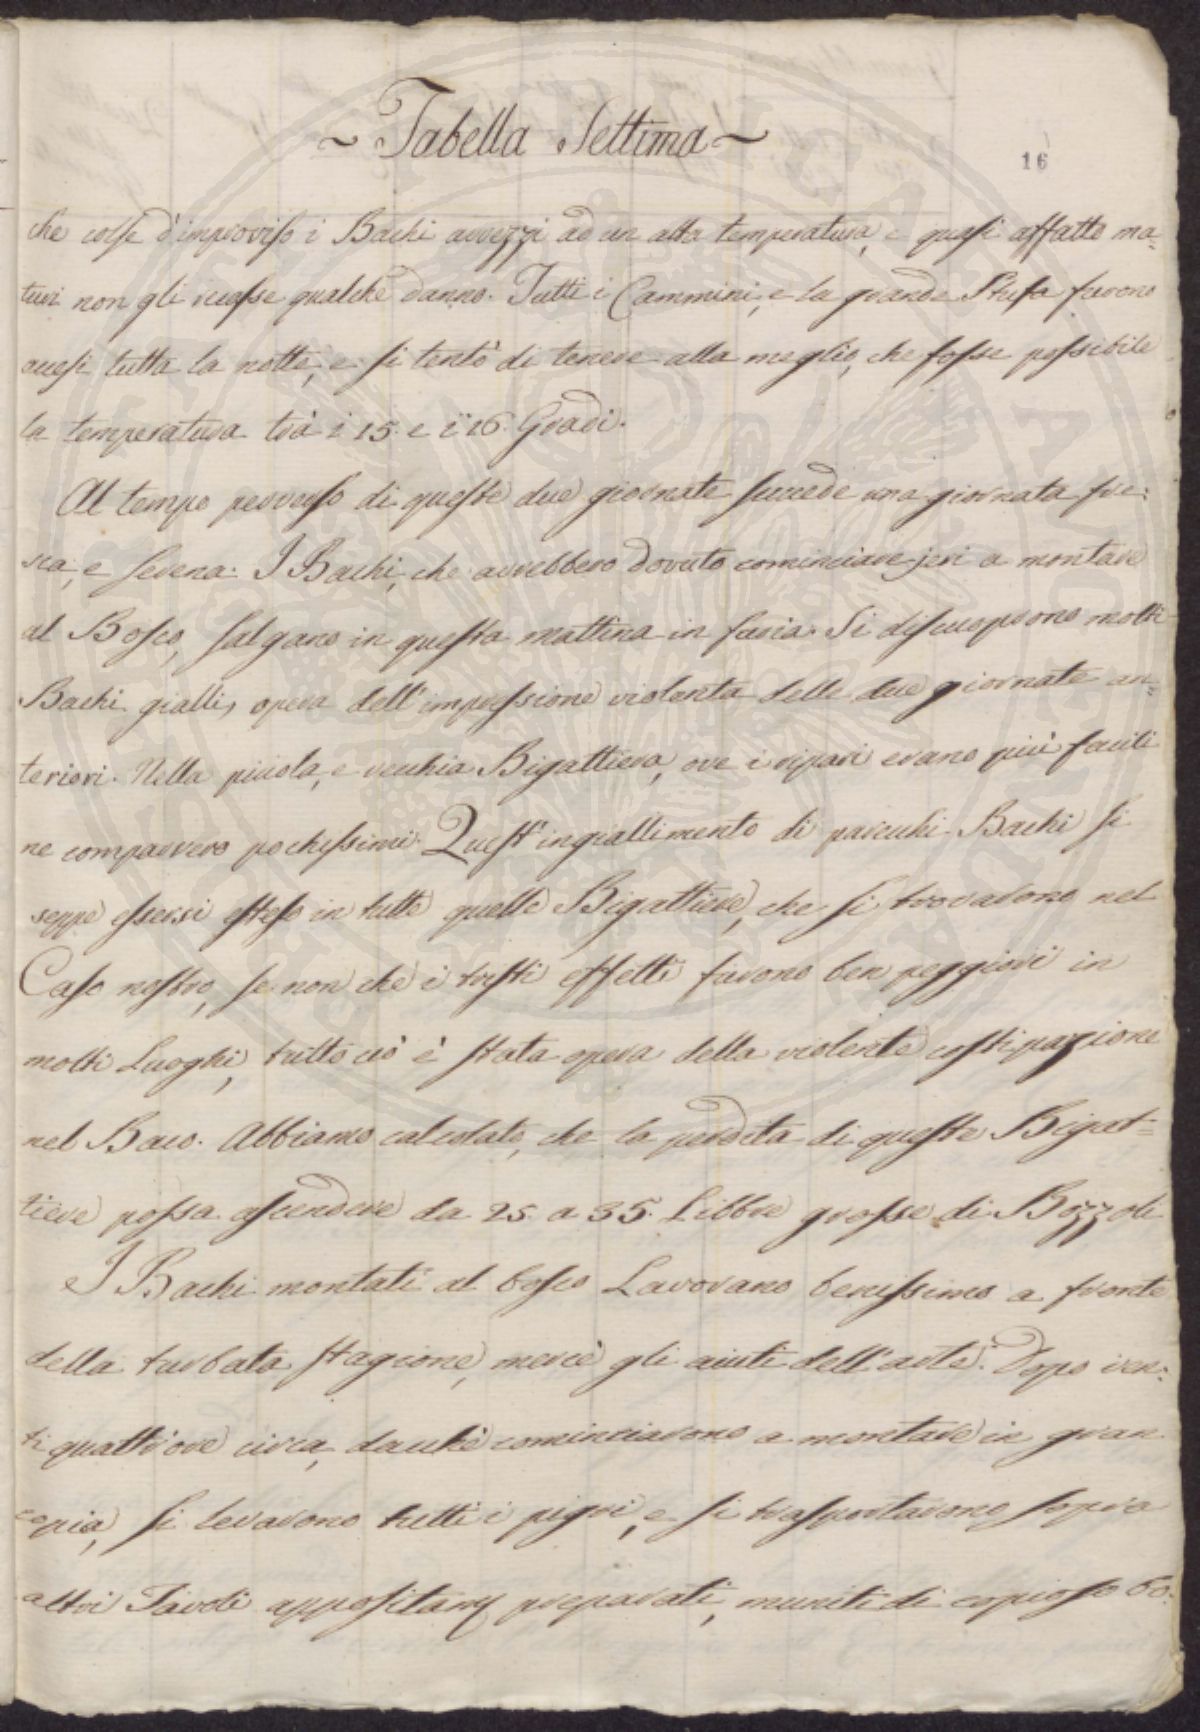 ~ Tabella Settima ~
16
che colse d'improviso i Bachi avvezzi ad un alta temperatura, e quasi affatto ma=
turi non gli recasse qualche danno. Tutti i Cammini, e la grande Stufa furono
accesi tutta la notte, e si tentò di tenere alla meglio, che fosse possibile
la temperatura trà i 15. e i 16. Gradi.
Al tempo perverso di queste due giornate succede una giornata fre=
sca, e serena. I Bachi, che avrebbero dovuto cominciare jeri a montare
al Bosco, salgano in questa mattina in furia. Si discuoprono molti
Bachi gialli, opera dell'impressione violenta delle due giornate an=
teriori. Nella piciola, e vecchia Bigattiera, ove i ripari erano più facili
ne comparvero pochissimi. Quest'ingiallimento di parecchi Bachi si
seppe essersi esteso in tutte quelle Bigattiere, che si trovarono nel
Caso nostro, se non che i tristi effetti furono ben peggiori in
molti Luoghi, tutto ciò è stata opera della violente costipazione
nel Baco. Abbiamo calcolato, che la perdita di queste Bigat=
tiere possa ascendere da 25. a 35. Libbre grosse di Bozzoli
I Bachi montati al bosco Lavorano benissimo a fronte
della turbata stagione, mercè gli aiuti dell'arte. Dopo ven=
ti quattr'ore circa, dacchè cominciarono a montare in gran
copia, si levarono tutti i pigri, e si trasportarono sopra
altri Tavoli appositam preparati, muniti di copioso bo=